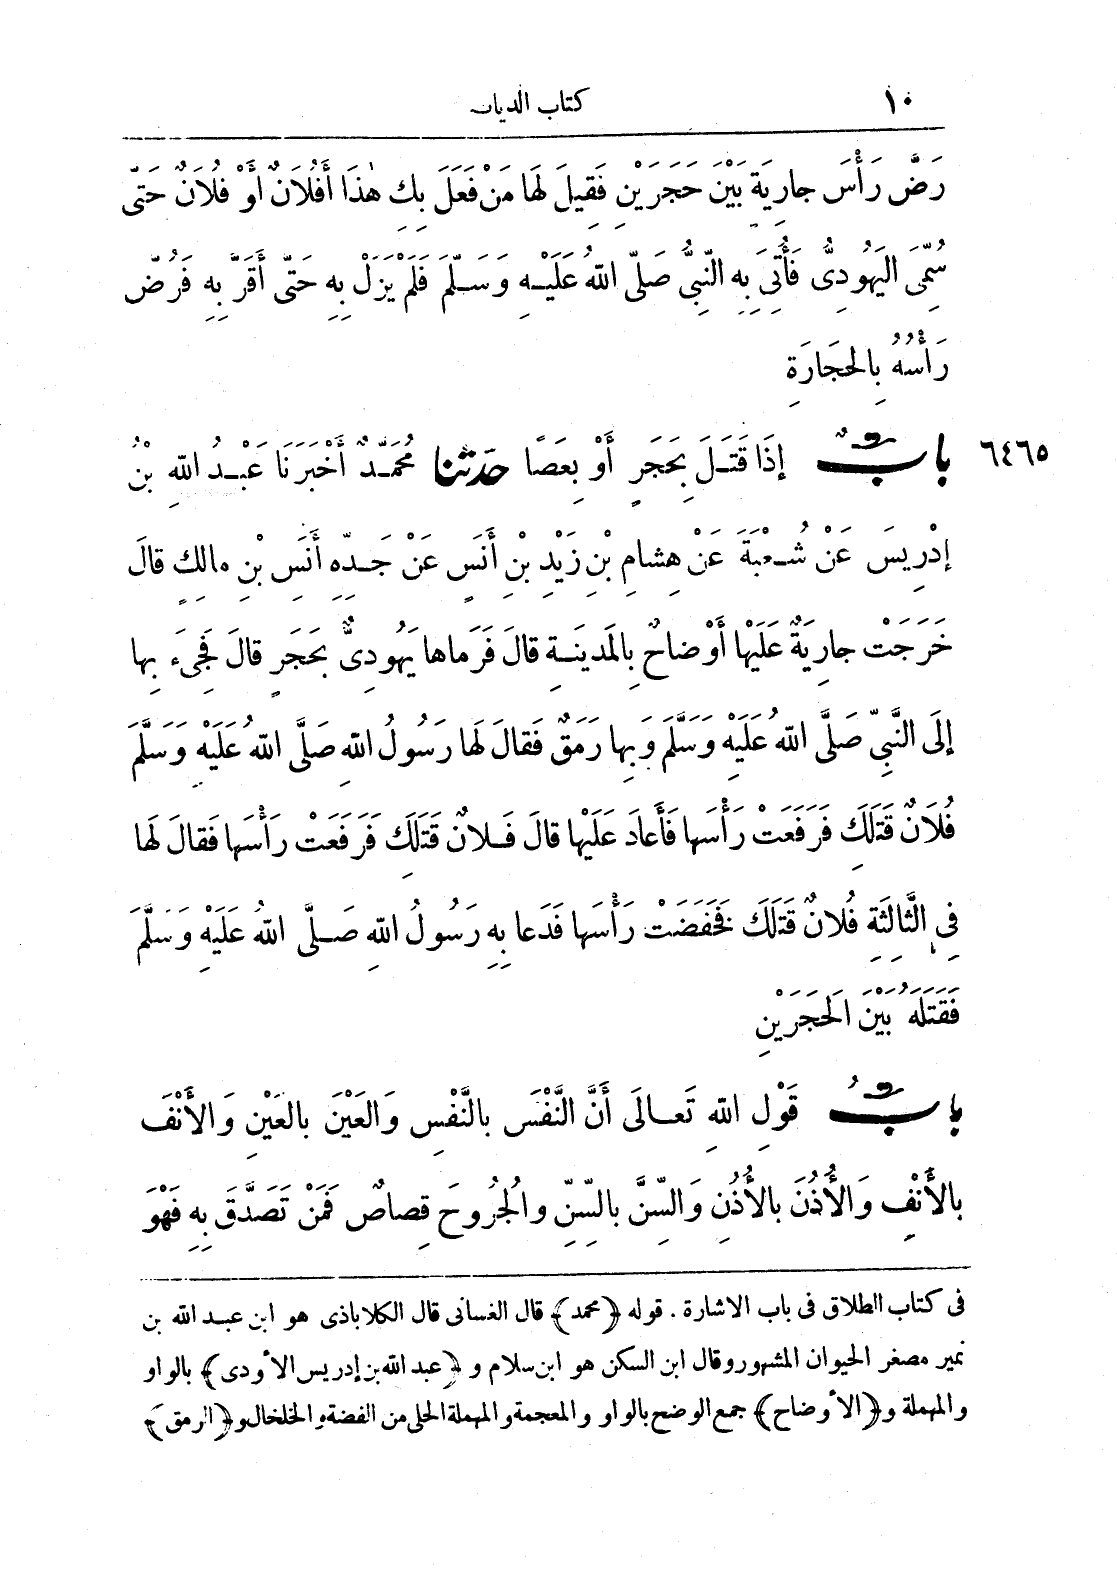 ١٠ كتاب الديات
رَضَّ رَأْسَ جارِيَةٍ بَيْنَ حَجَرَيْنِ فَقِيلَ لَهَا مَنْ فَعَلَ بِكِ هٰذَا أَفُلَانٌ أَوْ فُلَانٌ حَتَّى
سُمِّىَ الْيَهُودِىُّ فَأُتِىَ بِهِ النَّبِىُّ صَلَّى اللهُ عَلَيْهِ وَسَلَّمَ فَلَمْ يَزَلْ بِهِ حَتَّى أَقَرَّ بِهِ فَرُضَّ
رَأْسُهُ بِالْحِجَارَةِ
٦٤٦٥ بابٌ إِذَا قَتَلَ بِحَجَرٍ أَوْ بِعَصًا حَدَثنا مُحَمَّدٌ أَخْبَرَنَا عَبْدُ اللهِ بْنُ
إِدْرِيسَ عَنْ شُعْبَةَ عَنْ هِشامِ بْنِ زَيْدِ بْنِ أَنَسٍ عَنْ جَدِّهِ أَنَسِ بْنِ مالِكٍ قالَ
خَرَجَتْ جارِيَةٌ عَلَيْها أَوْضاحٌ بِالْمَدِينَةِ قالَ فَرَماها يَهُودِىٌّ بِحَجَرٍ قالَ فَجِىءَ بِها
إِلَى النَّبِىِّ صَلَّى اللهُ عَلَيْهِ وَسَلَّمَ وَبِها رَمَقٌ فَقالَ لَهَا رَسُولُ اللهِ صَلَّى اللهُ عَلَيْهِ وَسَلَّمَ
فُلَانٌ قَتَلَكِ فَرَفَعَتْ رَأْسَها فَأَعادَ عَلَيْها قالَ فُلانٌ قَتَلَكِ فَرَفَعَتْ رَأْسَها فَقالَ لَها
فِى الثَّالِثَةِ فُلانٌ قَتَلَكِ فَخَفَضَتْ رَأْسَها فَدَعا بِهِ رَسُولُ اللهِ صَلَّى اللهُ عَلَيْهِ وَسَلَّمَ
فَقَتَلَهُ بَيْنَ الْحَجَرَيْنِ
بابُ قَوْلِ اللهِ تَعالَى أَنَّ النَّفْسَ بِالنَّفْسِ وَالْعَيْنَ بِالْعَيْنِ وَالأَنْفَ
بِالأَنْفِ وَالأُذُنَ بِالأُذُنِ وَالسِّنَّ بِالسِّنِّ والْجُرُوحَ قِصاصٌ فَمَنْ تَصَدَّقَ بِهِ فَهْوَ
فى كتاب الطلاق فى باب الاشارة. قوله ﴿محمد﴾ قال الغسانى قال الكلاباذى هو ابن عبد الله بن
نمير مصغر الحيوان المشهور وقال ابن السكن هو ابن سلام و ﴿عبد الله بن إدريس الأودى﴾ بالواو
والمهملة و﴿الأوضاح﴾ جمع الوضح بالواو والمعجمة والمهملة الحلى من الفضة والخلخال و﴿الرمق﴾